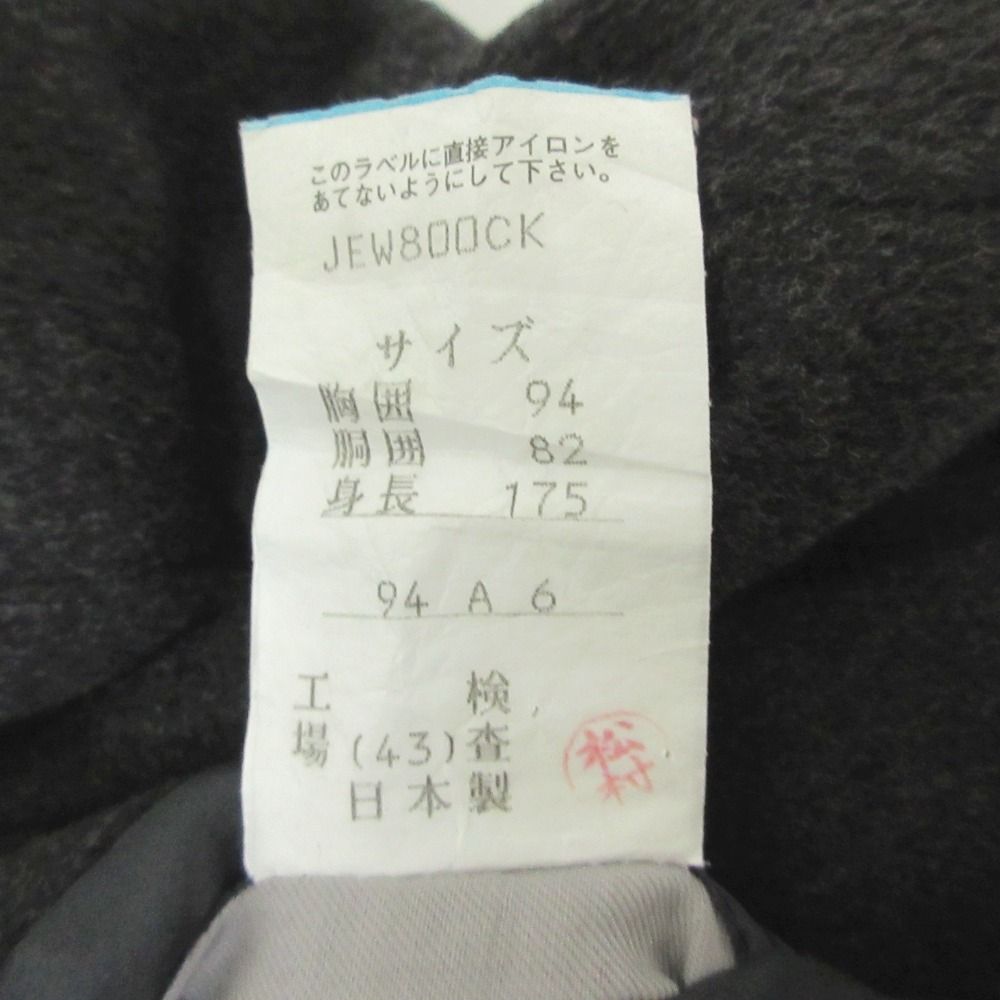 このラベルに直接アイロンを
あてないようにして下さい。
JEW800CK
サイズ
胸囲 94
胴囲 82
身長 175
94 A 6
工 検
場 (43) 査
日本製
松村